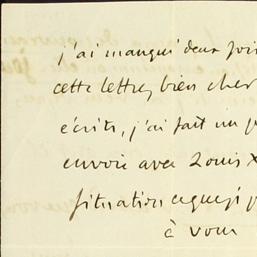 j'ai manqué deux fois
cette lettre, bien cher
écrits, j'ai fait un
envoie avec Louis X
situation
à vous